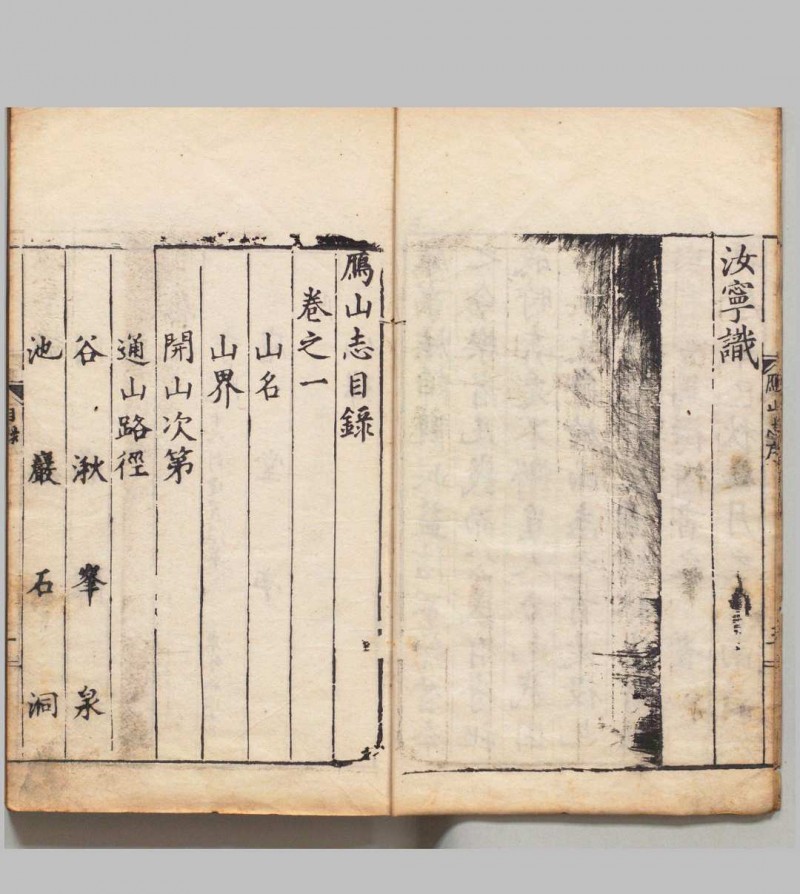 汝寧識
鴈山志序
鴈山志目錄
卷之一
山名
山界
開山次第
通山路徑
谷 湫 峯 泉
池 巖 石 洞
目錄